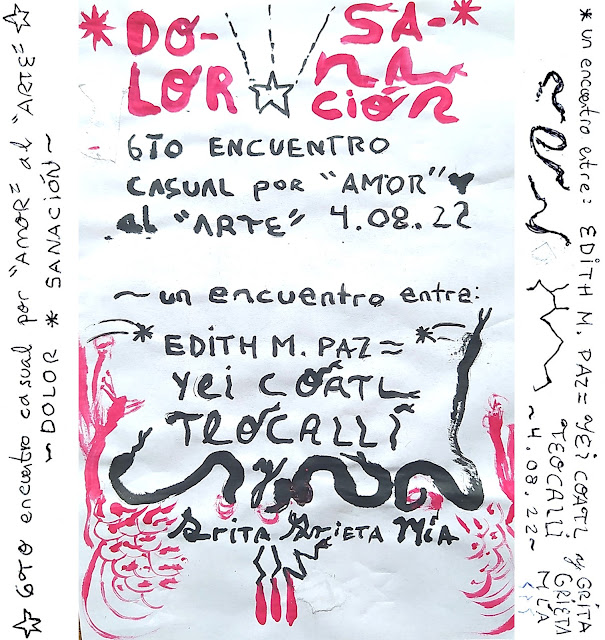 * DO-
LOR
SA- *
NA
CIÓN
6TO ENCUENTRO
CASUAL por "AMOR" ♥
al "ARTE" 4.08.22
~ un encuentro entre:
* EDITH M. PAZ = *
Yei CÓATL
TEOCALLI
y
Grita Grieta Mía
☆ 6TO encuentro casual por "AMOR" al "ARTE" ☆
~ DOLOR * SANACIÓN ~
* un encuentro entre: EDITH M. PAZ = YEI COATL y GRITA
TEOCALLI GRIETA
~ 4.08.22 ~ MÍA